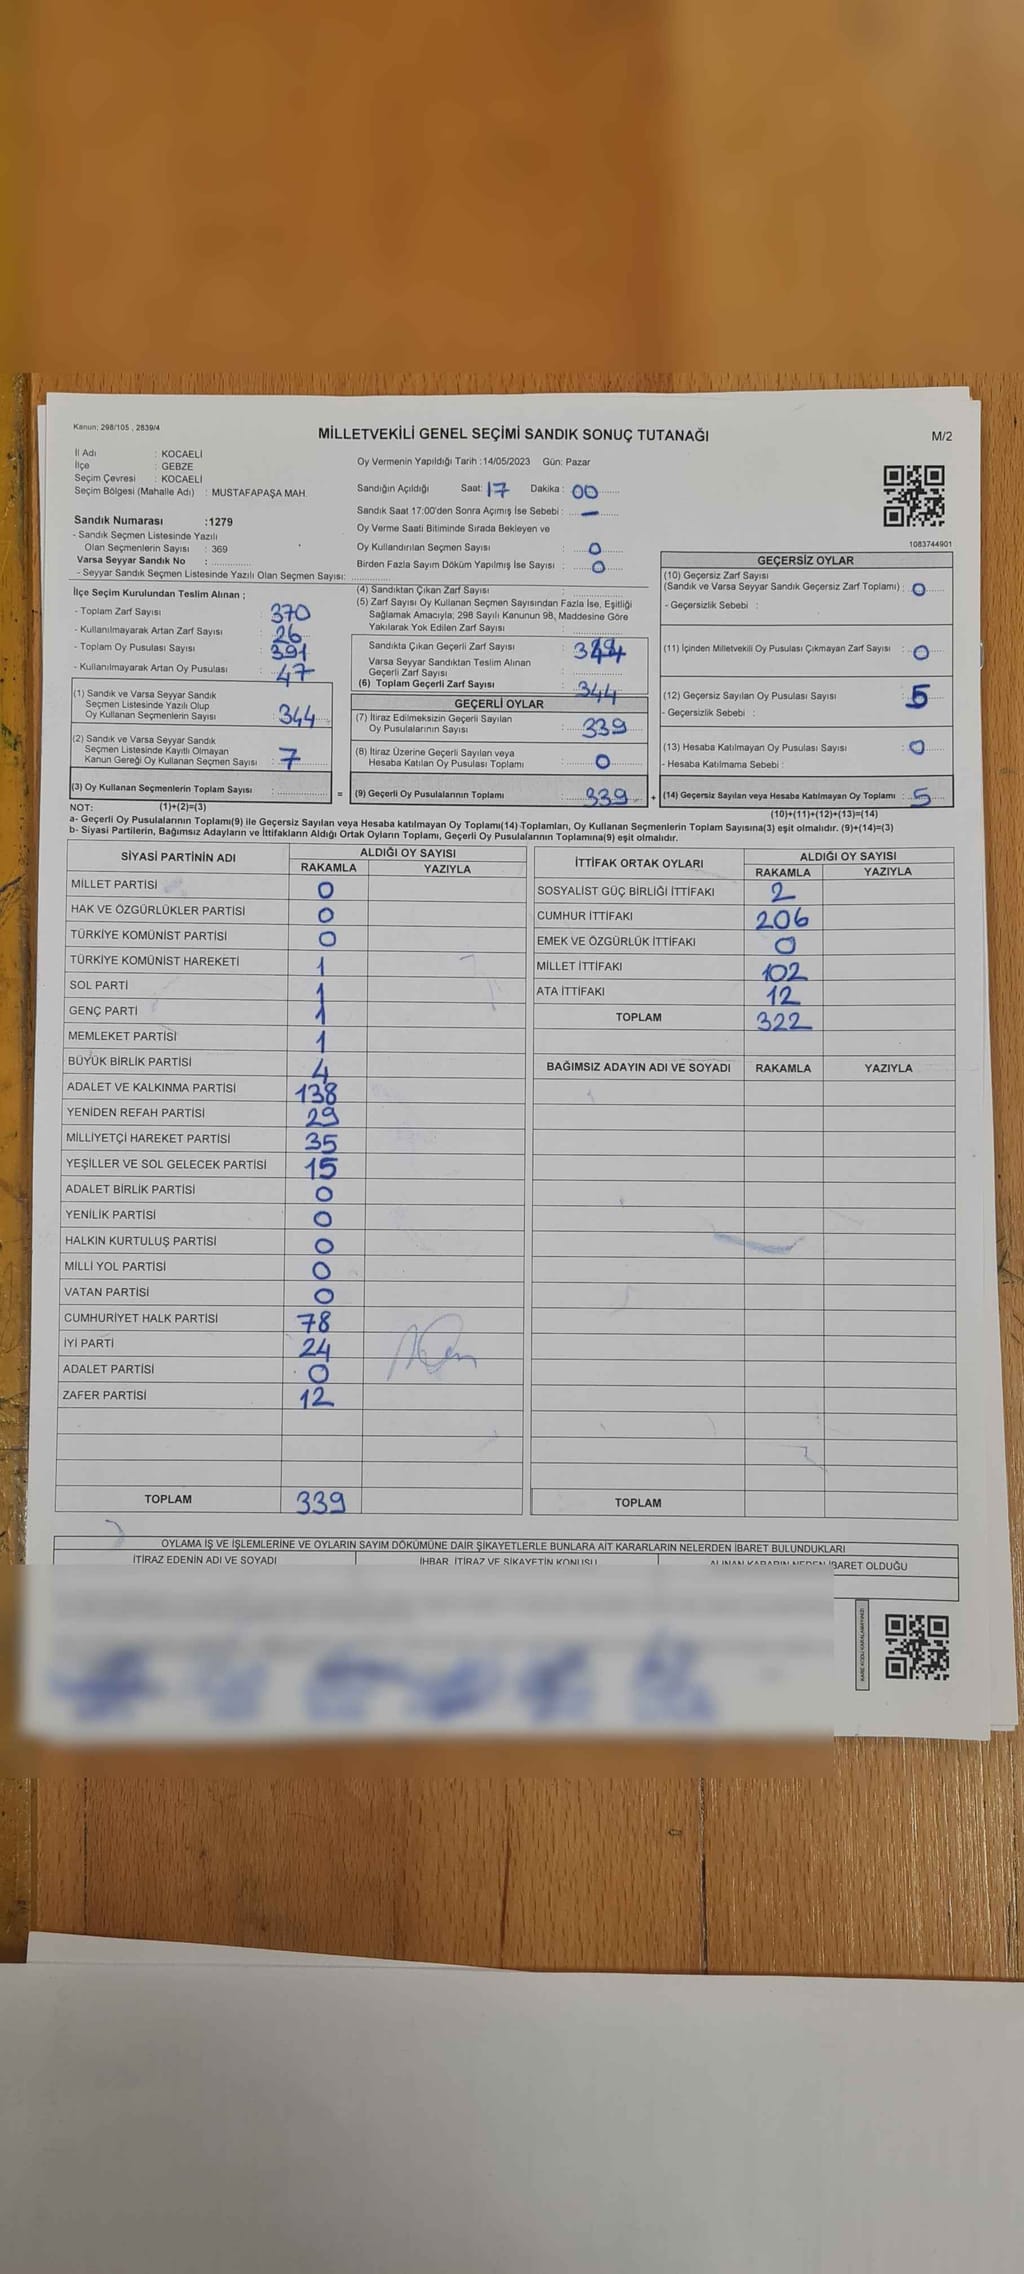 Kanun; 298/105 , 2839/4
MİLLETVEKİLİ GENEL SEÇİMİ SANDIK SONUÇ TUTANAĞI
M/2
İl Adı : KOCAELİ
İlçe : GEBZE
Seçim Çevresi : KOCAELİ
Seçim Bölgesi (Mahalle Adı) : MUSTAFAPAŞA MAH.
Sandık Numarası :1279
- Sandık Seçmen Listesinde Yazılı
Olan Seçmenlerin Sayısı : 369
Varsa Seyyar Sandık No :
- Seyyar Sandık Seçmen Listesinde Yazılı Olan Seçmen Sayısı:
Oy Vermenin Yapıldığı Tarih :14/05/2023 Gün: Pazar
Sandığın Açıldığı Saat: 17 Dakika : 00
Sandık Saat 17:00'den Sonra Açımış İse Sebebi : —
Oy Verme Saati Bitiminde Sırada Bekleyen ve
Oy Kullandırılan Seçmen Sayısı : 0
Birden Fazla Sayım Döküm Yapılmış İse Sayısı : 0
1083744901
İlçe Seçim Kurulundan Teslim Alınan ;
- Toplam Zarf Sayısı : 370
- Kullanılmayarak Artan Zarf Sayısı : 26
- Toplam Oy Pusulası Sayısı : 391
- Kullanılmayarak Artan Oy Pusulası : 47
(1) Sandık ve Varsa Seyyar Sandık
Seçmen Listesinde Yazılı Olup
Oy Kullanan Seçmenlerin Sayısı : 344
(2) Sandık ve Varsa Seyyar Sandık
Seçmen Listesinde Kayıtlı Olmayan
Kanun Gereği Oy Kullanan Seçmen Sayısı : 7
(3) Oy Kullanan Seçmenlerin Toplam Sayısı :
(4) Sandıktan Çıkan Zarf Sayısı :
(5) Zarf Sayısı Oy Kullanan Seçmen Sayısından Fazla İse, Eşitliği
Sağlamak Amacıyla; 298 Sayılı Kanunun 98. Maddesine Göre
Yakılarak Yok Edilen Zarf Sayısı :
Sandıkta Çıkan Geçerli Zarf Sayısı : 344
Varsa Seyyar Sandıktan Teslim Alınan
Geçerli Zarf Sayısı :
(6) Toplam Geçerli Zarf Sayısı : 344
GEÇERLİ OYLAR
(7) İtiraz Edilmeksizin Geçerli Sayılan
Oy Pusulalarının Sayısı : 339
(8) İtiraz Üzerine Geçerli Sayılan veya
Hesaba Katılan Oy Pusulası Toplamı : 0
= (9) Geçerli Oy Pusulalarının Toplamı : 339
GEÇERSİZ OYLAR
(10) Geçersiz Zarf Sayısı
(Sandık ve Varsa Seyyar Sandık Geçersiz Zarf Toplamı) : 0
- Geçersizlik Sebebi :
(11) İçinden Milletvekili Oy Pusulası Çıkmayan Zarf Sayısı : 0
(12) Geçersiz Sayılan Oy Pusulası Sayısı : 5
- Geçersizlik Sebebi :
(13) Hesaba Katılmayan Oy Pusulası Sayısı : 0
- Hesaba Katılmama Sebebi :
+ (14) Geçersiz Sayılan veya Hesaba Katılmayan Oy Toplamı : 5
NOT: (1)+(2)=(3)
(10)+(11)+(12)+(13)=(14)
a- Geçerli Oy Pusulalarının Toplamı(9) ile Geçersiz Sayılan veya Hesaba katılmayan Oy Toplamı(14) Toplamları, Oy Kullanan Seçmenlerin Toplam Sayısına(3) eşit olmalıdır. (9)+(14)=(3)
b- Siyasi Partilerin, Bağımsız Adayların ve İttifakların Aldığı Ortak Oyların Toplamı, Geçerli Oy Pusulalarının Toplamına(9) eşit olmalıdır.
SİYASİ PARTİNİN ADI ALDIĞI OY SAYISI
RAKAMLA YAZIYLA
MİLLET PARTİSİ 0
HAK VE ÖZGÜRLÜKLER PARTİSİ 0
TÜRKİYE KOMÜNİST PARTİSİ 0
TÜRKİYE KOMÜNİST HAREKETİ 1
SOL PARTİ 1
GENÇ PARTİ 1
MEMLEKET PARTİSİ 1
BÜYÜK BİRLİK PARTİSİ 4
ADALET VE KALKINMA PARTİSİ 138
YENİDEN REFAH PARTİSİ 29
MİLLİYETÇİ HAREKET PARTİSİ 35
YEŞİLLER VE SOL GELECEK PARTİSİ 15
ADALET BİRLİK PARTİSİ 0
YENİLİK PARTİSİ 0
HALKIN KURTULUŞ PARTİSİ 0
MİLLİ YOL PARTİSİ 0
VATAN PARTİSİ 0
CUMHURİYET HALK PARTİSİ 78
İYİ PARTİ 24
ADALET PARTİSİ 0
ZAFER PARTİSİ 12
TOPLAM 339
İTTİFAK ORTAK OYLARI ALDIĞI OY SAYISI
RAKAMLA YAZIYLA
SOSYALİST GÜÇ BİRLİĞİ İTTİFAKI 2
CUMHUR İTTİFAKI 206
EMEK VE ÖZGÜRLÜK İTTİFAKI 0
MİLLET İTTİFAKI 102
ATA İTTİFAKI 12
TOPLAM 322
BAĞIMSIZ ADAYIN ADI VE SOYADI RAKAMLA YAZIYLA
TOPLAM
OYLAMA İŞ VE İŞLEMLERİNE VE OYLARIN SAYIM DÖKÜMÜNE DAİR ŞİKAYETLERLE BUNLARA AİT KARARLARIN NELERDEN İBARET BULUNDUKLARI
İTİRAZ EDENİN ADI VE SOYADI İHBAR, İTİRAZ VE ŞİKAYETİN KONUSU ALINAN KARARIN NEDEN İBARET OLDUĞU
KARE KODU KARALAMAYINIZ!